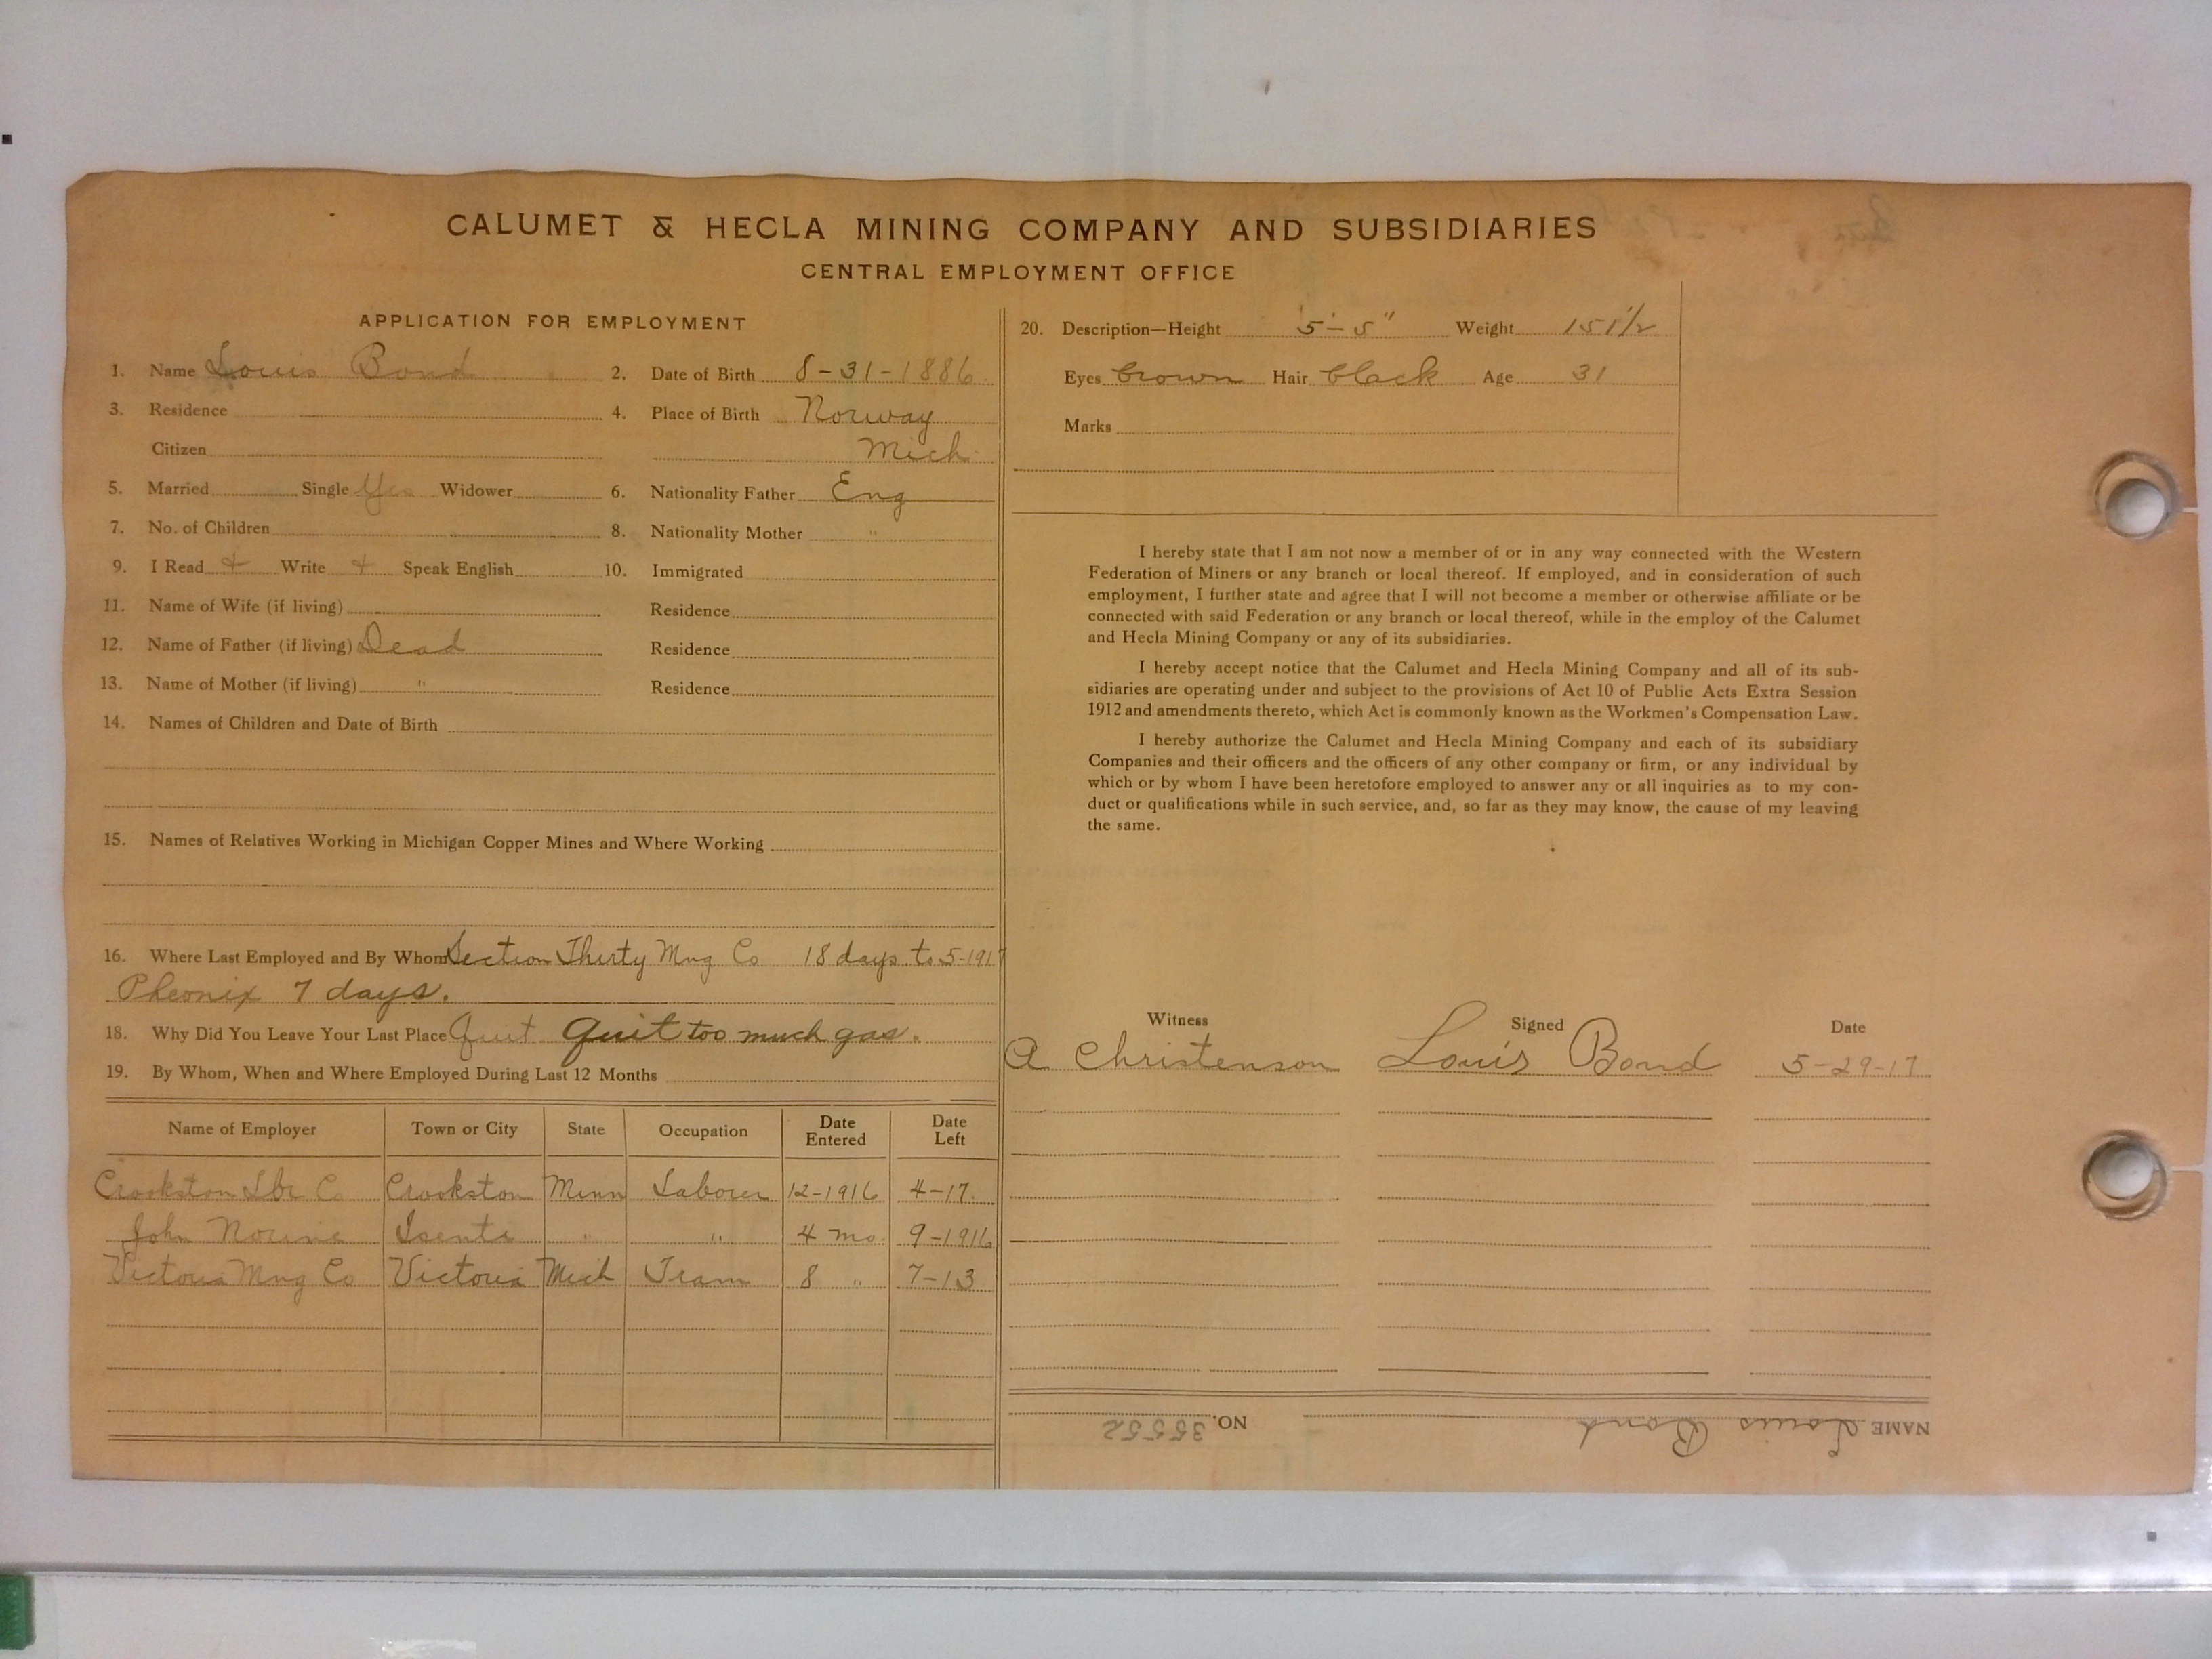 CALUMET & HECLA MINING COMPANY AND SUBSIDIARIES
CENTRAL EMPLOYMENT OFFICE
APPLICATION FOR EMPLOYMENT
1. Name Louis Bond 2. Date of Birth 8-31-1886
3. Residence 4. Place of Birth Norway
Citizen Mich
5. Married Single Yes Widower 6. Nationality Father Eng
7. No. of Children 8. Nationality Mother "
9. I Read + Write + Speak English 10. Immigrated
11. Name of Wife (if living) Residence
12. Name of Father (if living) Dead Residence
13. Name of Mother (if living) " Residence
14. Names of Children and Date of Birth
15. Names of Relatives Working in Michigan Copper Mines and Where Working
16. Where Last Employed and By Whom Section Thirty Mng Co 18 days to 5-1917
Pheonix 7 days.
18. Why Did You Leave Your Last Place Quit Quit too much gas.
19. By Whom, When and Where Employed During Last 12 Months
Name of Employer Town or City State Occupation Date Entered Date Left
Crookston Lbr Co Crookston Minn Laborer 12-1916 4-17
John " " 4 mo. 9-1916
Victoria Mng Co Victoria Mich Tram 8 " 7-13
20. Description—Height 5'-5" Weight 151½
Eyes brown Hair black Age 31
Marks
I hereby state that I am not now a member of or in any way connected with the Western
Federation of Miners or any branch or local thereof. If employed, and in consideration of such
employment, I further state and agree that I will not become a member or otherwise affiliate or be
connected with said Federation or any branch or local thereof, while in the employ of the Calumet
and Hecla Mining Company or any of its subsidiaries.
I hereby accept notice that the Calumet and Hecla Mining Company and all of its sub-
sidiaries are operating under and subject to the provisions of Act 10 of Public Acts Extra Session
1912 and amendments thereto, which Act is commonly known as the Workmen's Compensation Law.
I hereby authorize the Calumet and Hecla Mining Company and each of its subsidiary
Companies and their officers and the officers of any other company or firm, or any individual by
which or by whom I have been heretofore employed to answer any or all inquiries as to my con-
duct or qualifications while in such service, and, so far as they may know, the cause of my leaving
the same.
Witness Signed Date
A Christenson Louis Bond 5-29-17
NAME Louis Bond NO. 35552